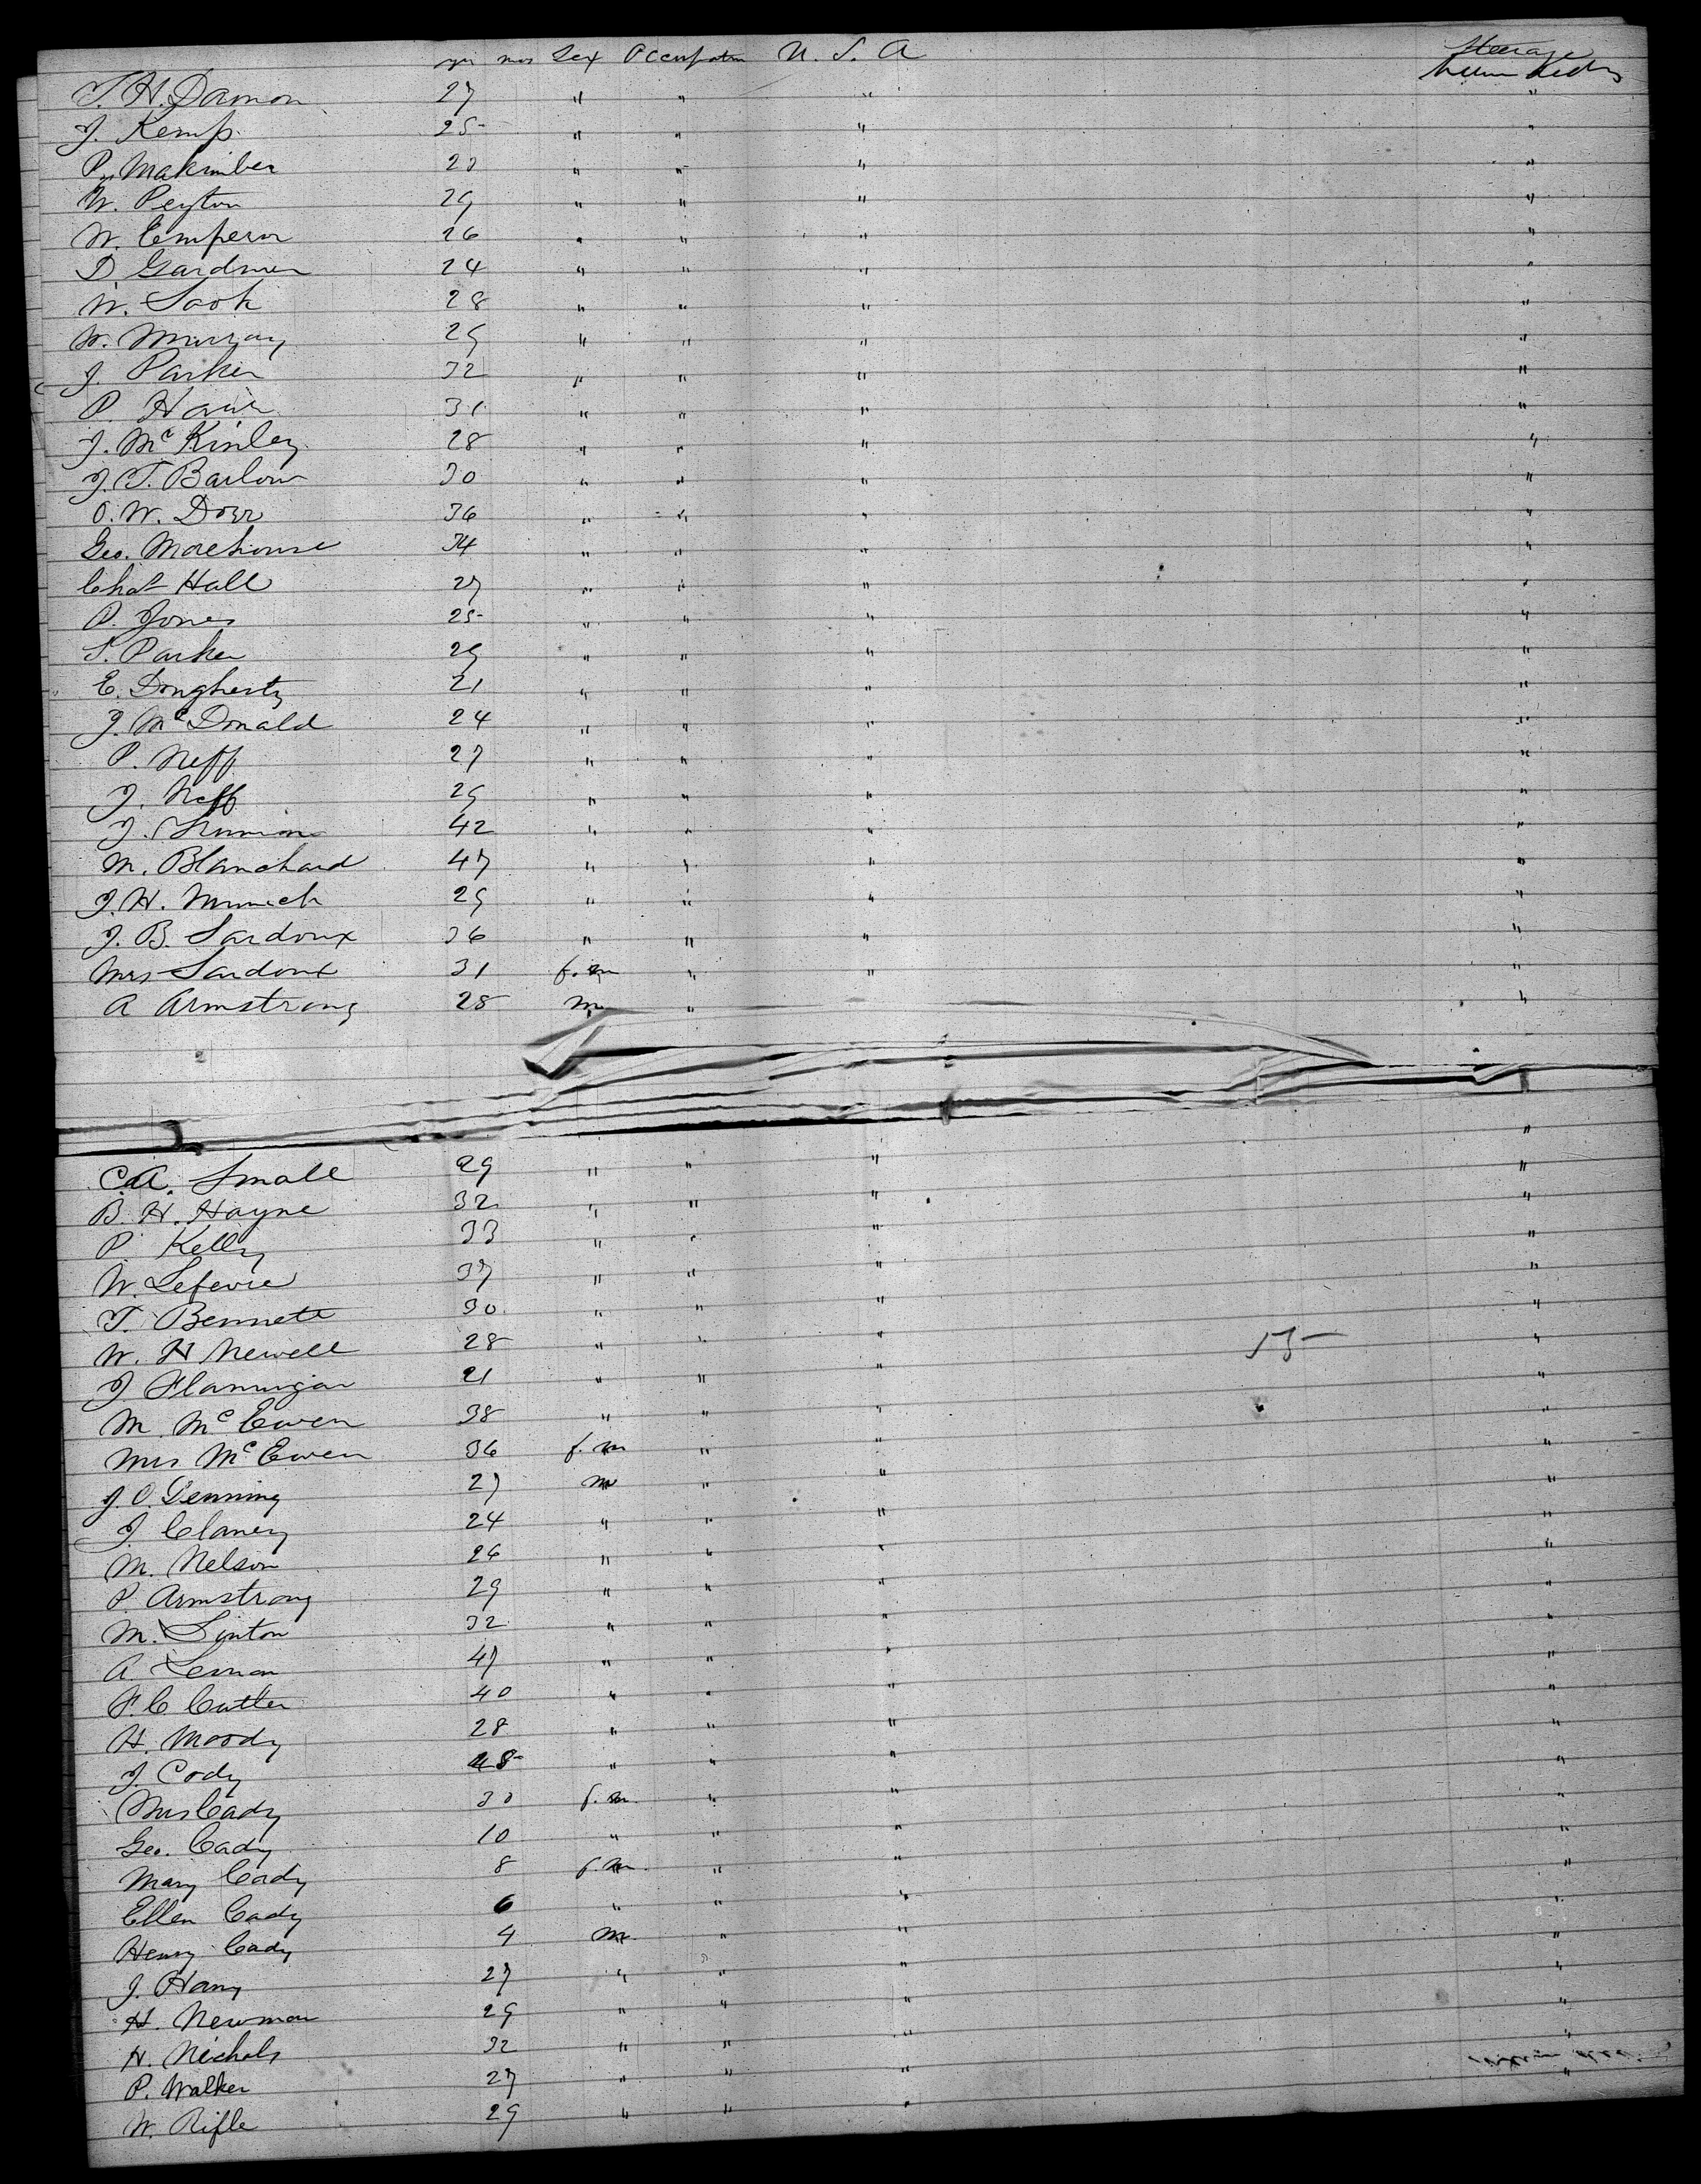 yrs mos Sex Occupation U. S. A Steerage
T. H. Damon 27 " " " "
J. Kemp 25 " " " "
P. " " " "
W. Peyton 29 " " " "
W. Emperor 26 " " " "
D Gardner 24 " " " "
W. 28 " " " "
W. Murray 29 " " " "
J. Parker 32 " " " "
P. 31 " " " "
J. McKinley 28 " " " "
J. T. Barlow 30 " " " "
O. W. Dorr 36 " " " "
Geo. Morehouse 34 " " " "
Chas Hall 27 " " " "
P. Jones 25 " " " "
S. Parker 29 " " " "
E. Dougherty 21 " " " "
J. McDonald 24 " " " "
P. Neff 27 " " " "
J. Neff 29 " " " "
J. 42 " " " "
M. Blanchard 47 " " " "
J. H. 29 " " " "
J. B. Sardoux 36 " " " "
Mrs Sardoux 31 f. m " " "
A Armstrong 28 m " "
"
C. A. Small 29 " " " "
B. H. Hayne 32 " " " "
P. Kelly 33 " " " "
W. Lefevre 37 " " " "
T. Bennett 30 " " " "
W. H Newell 28 " " " 15 "
J Flannigan 21 " " " "
M. McEwen 38 " " " "
Mrs McEwen 36 f. m " " "
J. O. Denning 27 m " " "
J. Clancy 24 " " " "
M. Nelson 26 " " " "
P. Armstrong 29 " " " "
M. Linton 32 " " " "
A. 47 " " " "
F. C. Cutler 40 " " " "
H. Moody 28 " " " "
J. Cody 48 " " " "
Mrs Cady 30 f. m. " " "
Geo. Cady 10 " " " "
Mary Cady 8 f. m. " " "
Ellen Cady 6 " " " "
Henry Cady 4 m " " "
J. 27 " " " "
H. Newman 29 " " " "
H. Nichols 32 " " " "
P. Walker 27 " " " "
W. Rifle 29 " " "